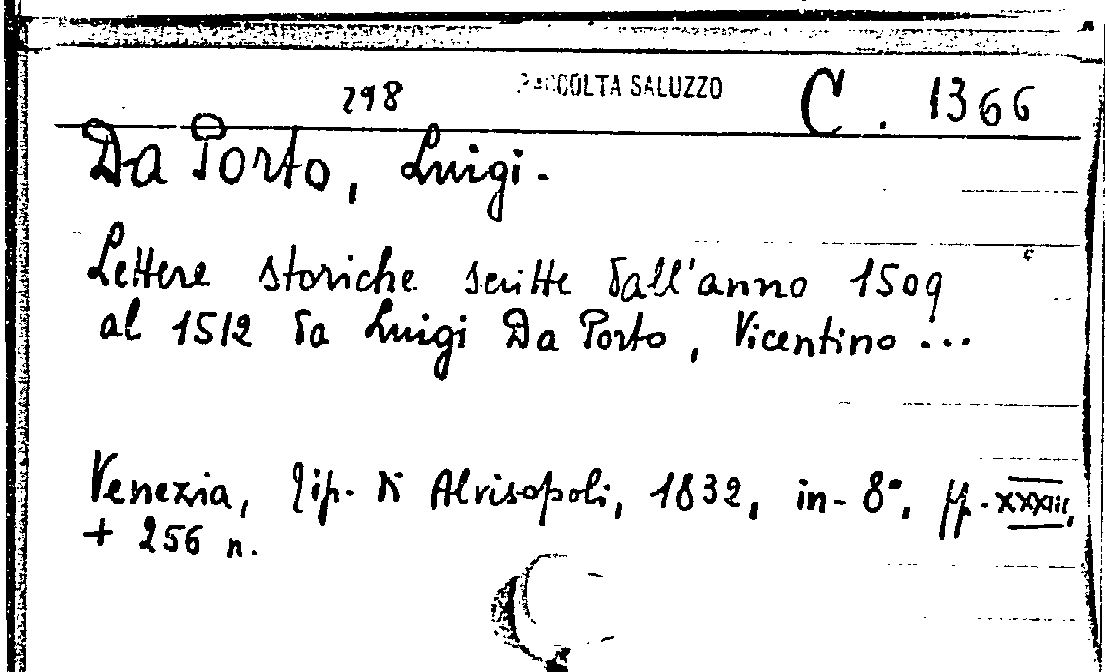 298 RACCOLTA SALUZZO C. 1366
Da Porto, Luigi.
Lettere storiche scritte dall'anno 1509
al 1512 da Luigi Da Porto, Vicentino...
Venezia, Tip. di Alvisopoli, 1832, in-8°, pp. XXXIII,
+ 256 n.